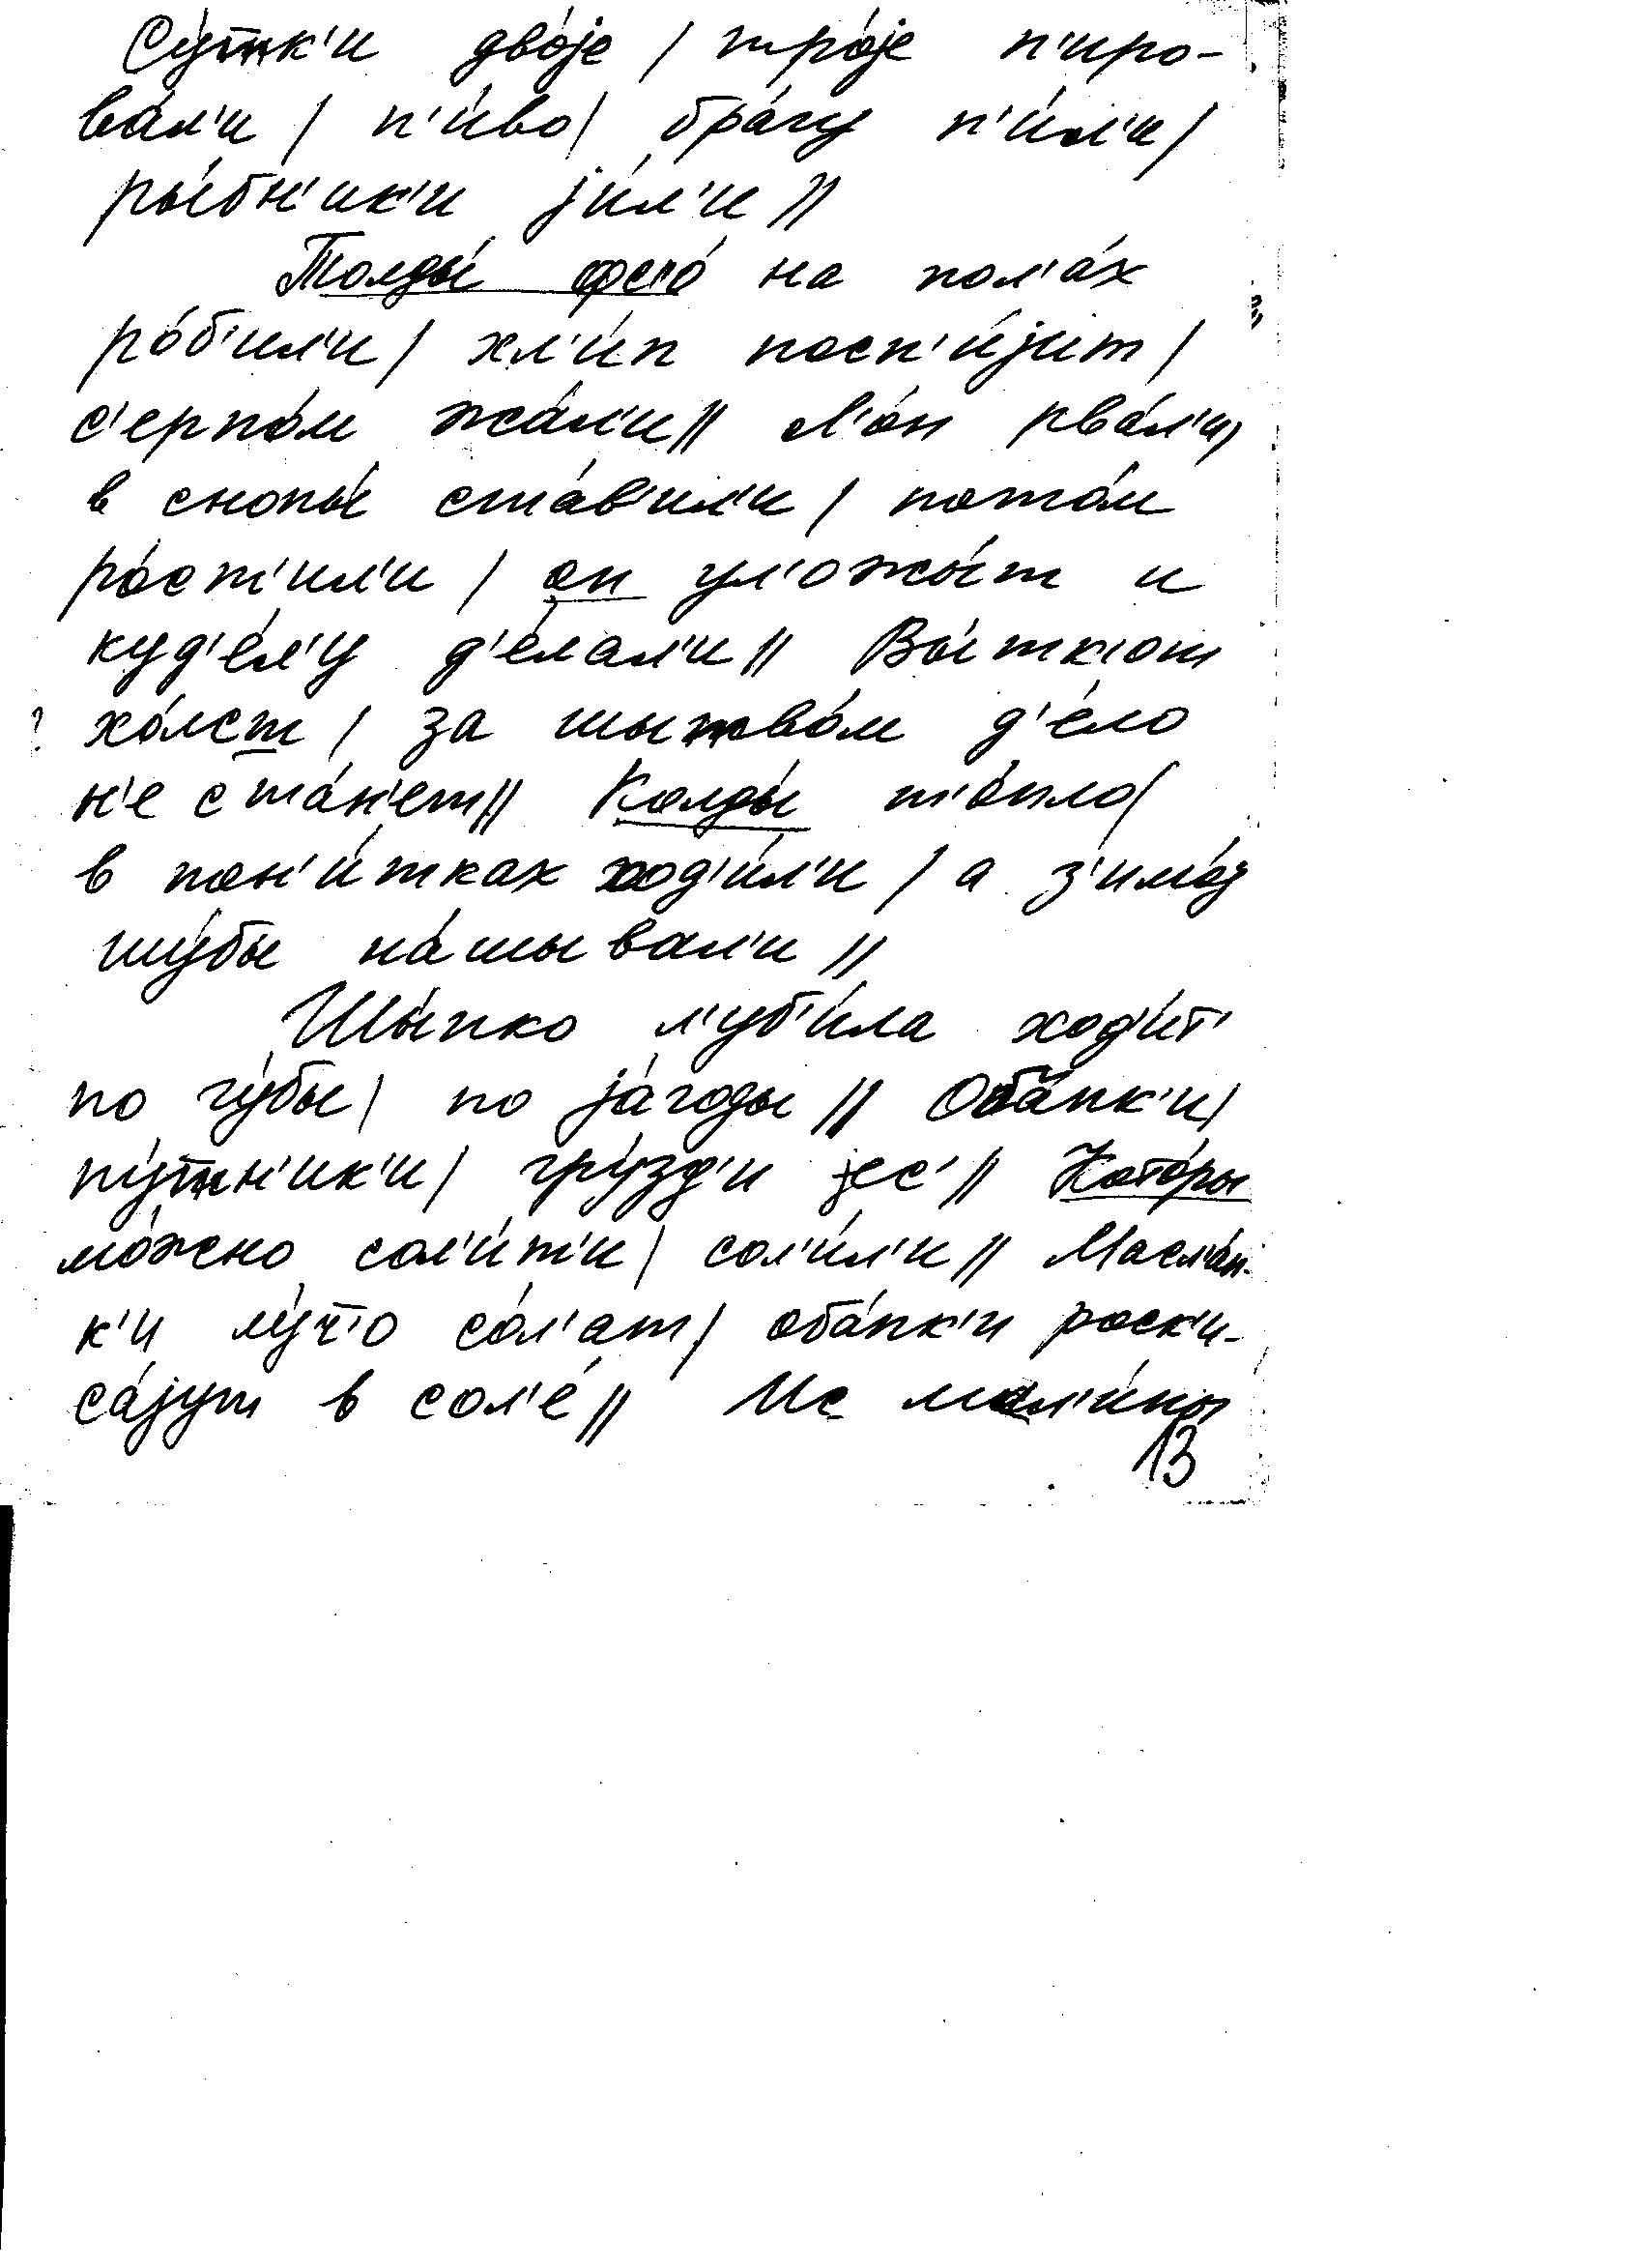 Су́тк'и дво́jе / тро́jе п'иро-
ва́л'и / п'и́во / бра́гу п'и́л'и /
ры́бн'ик'и jи́л'и //
Толды́ фс'о́ на пол'а́х
ро́б'ил'и / хл'и́п посп'и́jит /
с'ерпо́м жа́л'и // Л'о́н рва́л'и,
в снопы́ ста́в'ил'и / пото́м
ро́ст'ил'и / он ул'ожы́т и
куд'е́л'у д'е́лал'и // Вы́тк'от
? хо́лст / за шытво́м д'е́ло
н'е ста́н'ет // Колды́ т'о́пло /
в пон'и́тках ход'и́л'и / а з'имо́j
шу́бы на́шывал'и //
Шы́пко л'уб'и́ла ход'и́т'
по гу́бы / по jа́годы // Оба́пк'и /
пу́тн'ик'и / гру́зд'и jес' // Кото́ры
мо́жно сол'и́т'и / сол'и́л'и // Масл'а́н-
к'и лу́ч'о со́л'ат / оба́пк'и роск'и-
са́jут в сол'е́ // Ис мал'и́ны
13